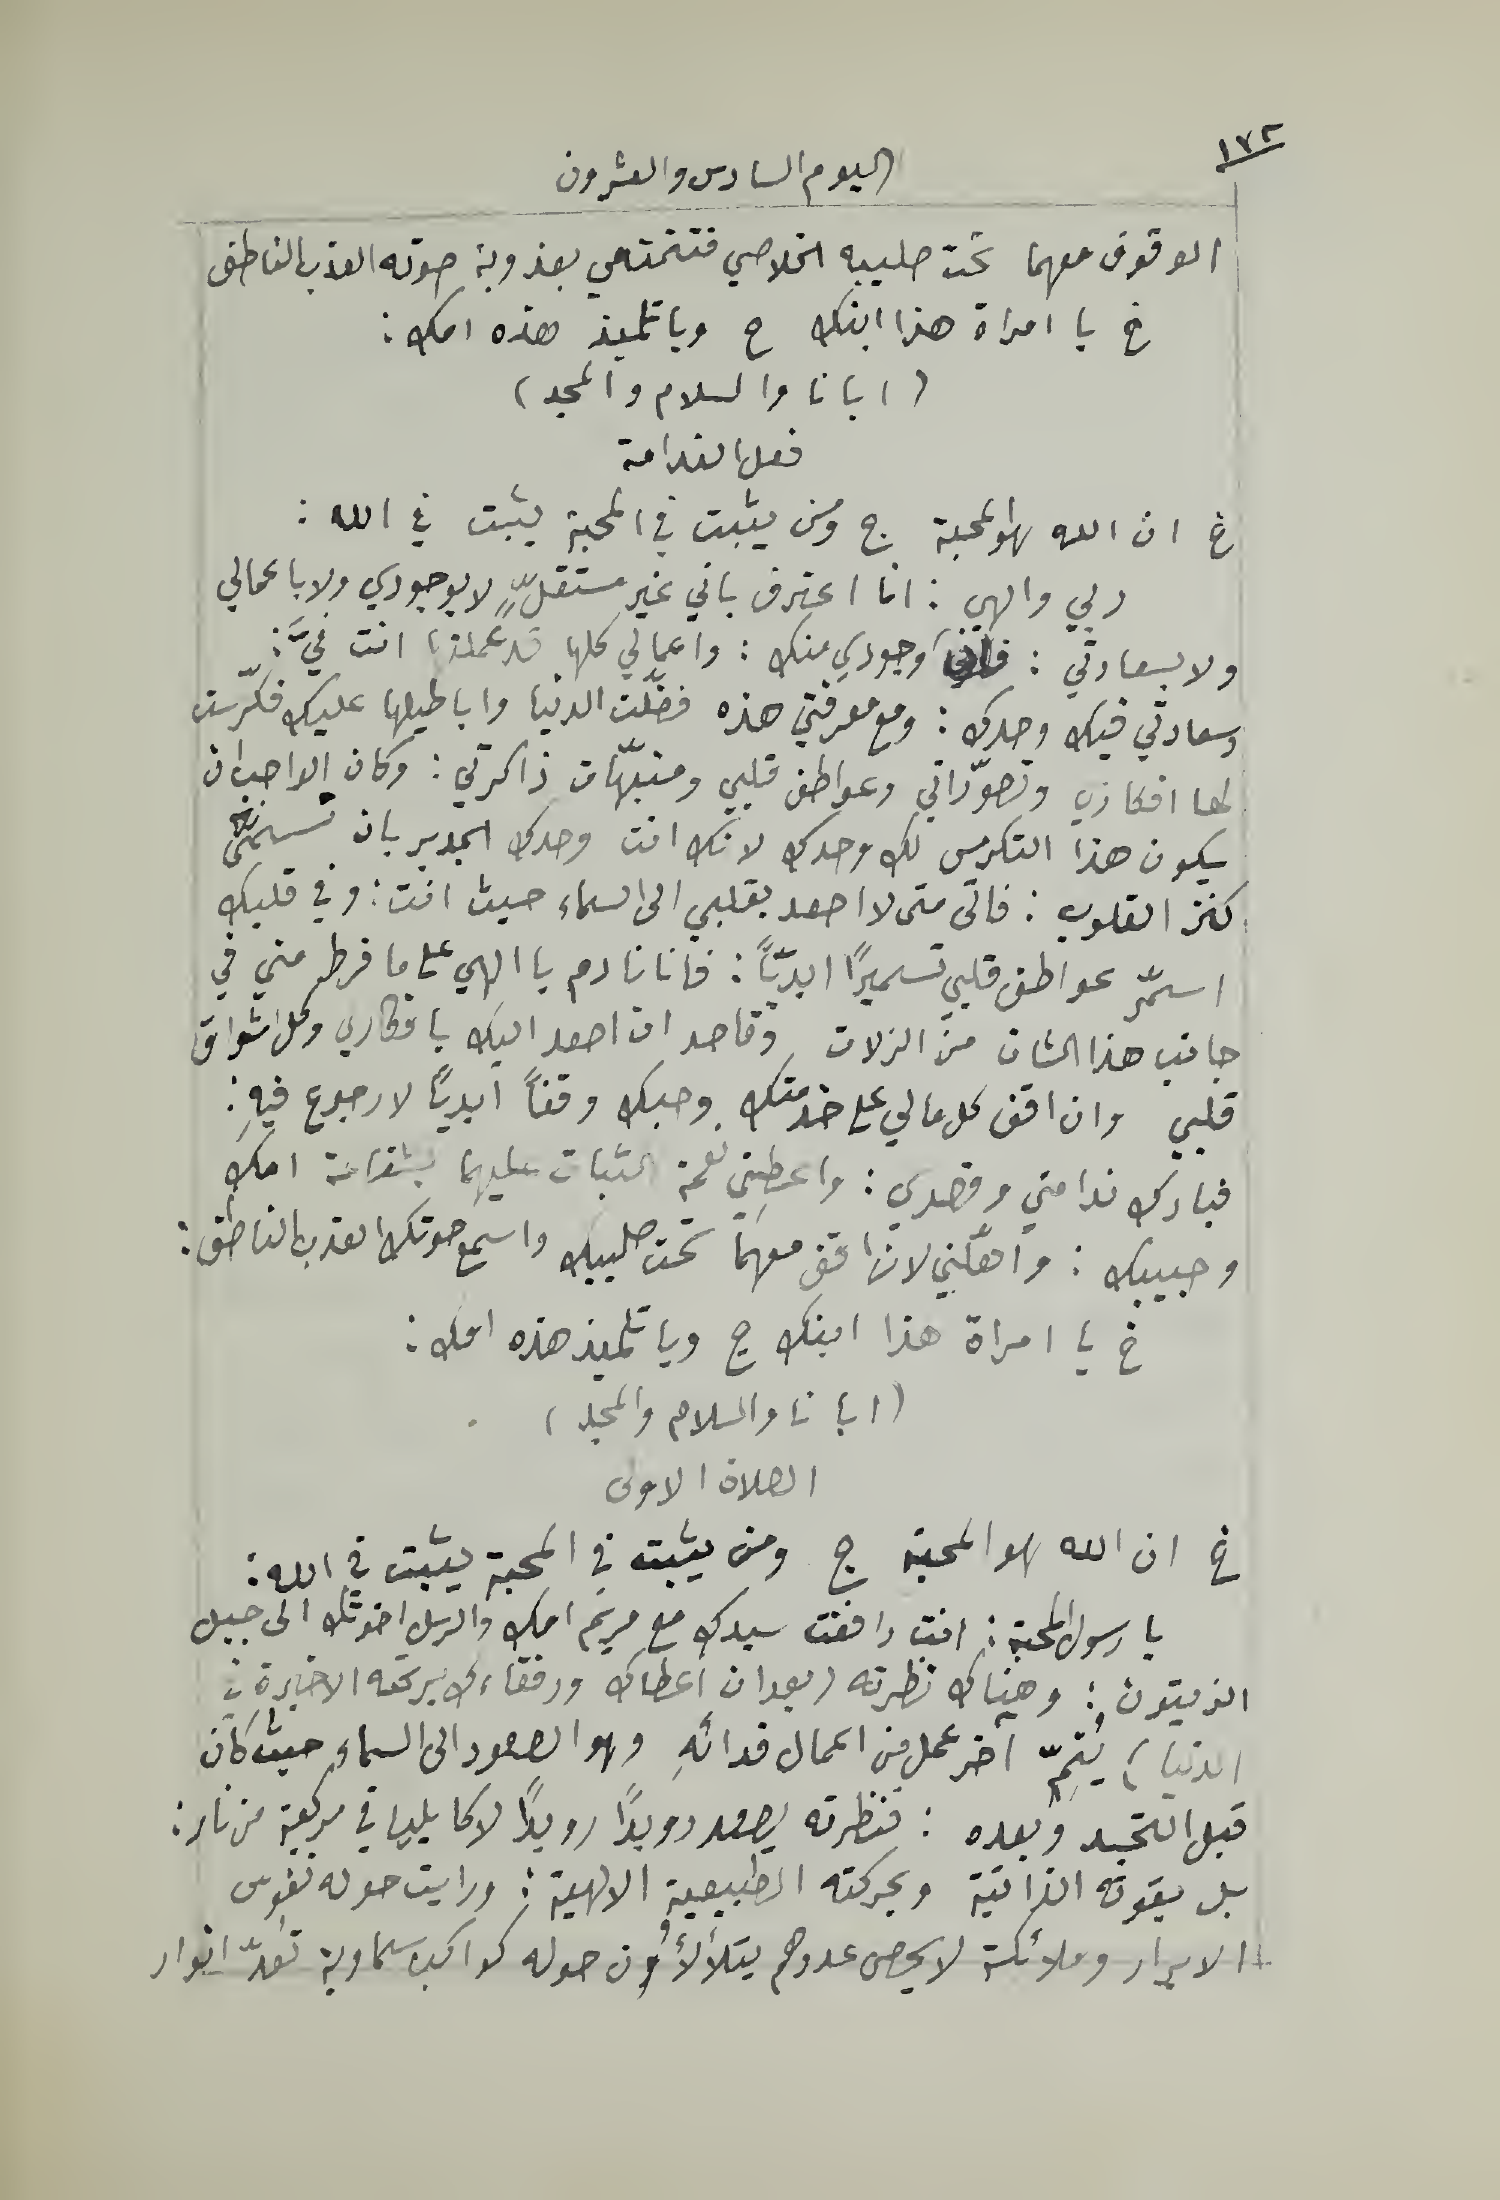 ١٧٢
اليوم السادس والعشرون
الوقوف معهما تحت صليبه الخلاصي فتتمتعي بعذوبة صوته العذب الناطق
خ يا امراة هذا ابنك ج ويا تلميذ هذه امك :
( ابانا والسلام والمجد )
فعل الندامة
خ ان الله هو المحبة ج ومن يثبت في المحبة يثبت في الله :
ربي والهي : انا اعترف باني غير مستقلٍّ لا بوجودي ولا باعمالي
ولا بسعادتي : فان وجودي منك : واعمالي كلها قد عملتها انت فيَّ :
وسعادتي فيك وحدك : ومع معرفتي هذه فضّلت الدنيا واباطيلها عليك فكرّست
لها افكاري وتصوّراتي وعواطف قلبي ومنبّهات ذاكرتي : وكان الواجب ان
يكون هذا التكريس لك وحدك لانك انت وحدك الجدير بان تسمّى
كنز القلوب : فالى متى لا اصعد بقلبي الى السماء حيث انت : وفي قلبك
اسمّر عواطف قلبي تسميرًا ابديًّا : فانا نادم يا الهي على ما فرط مني في
جانب هذا الشان من الزلات وقاصد ان اصعد اليك بافكاري وكل اشواق
قلبي وان اقف كل مالي على خدمتك وحبك وقفاً ابديًا لا رجوع فيهِ :
فبارك ندامتي وقصدي : واعطِني نعمة الثبات عليهما بشفاعة امك
وحبيبك : وأهّلني لان اقف معهما تحت صليبك واسمع صوتك العذب الناطق :
خ يا امراة هذا ابنك ج ويا تلميذ هذه امك :
( ابانا والسلام والمجد )
الصلاة الاولى
خ ان الله هو المحبة ج ومن يثبت في المحبة يثبت في الله :
يا رسول المحبة : انت رافقت سيدك مع مريم امك والرسل اخوتك الى جبل
الزيتون : وهناك نظرته ( بعد ان أعطاك ورفقاءك بركته الاخيرة في
الدنيا ) يُتِمّ آخر عمل من اعمال فدائهِ وهو الصعود الى السماء حيث كان
قبل التجسد وبعده : فنظرته يصعد رويدًا رويدًا لا كايليا في مركبة من نار :
بل بقوته الذاتية وبحركته الطبيعية الالهية : ورايت حوله نفوس
الابرار وملائكة لا يحصى عددهم يتلألأون حوله كواكب سماوية تُعدّ انوار